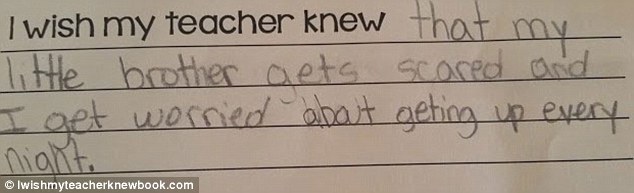 I wish my teacher knew that my
little brother gets scared and
I get worried abait geting up every
night.
© Iwishmyteacherknewbook.com